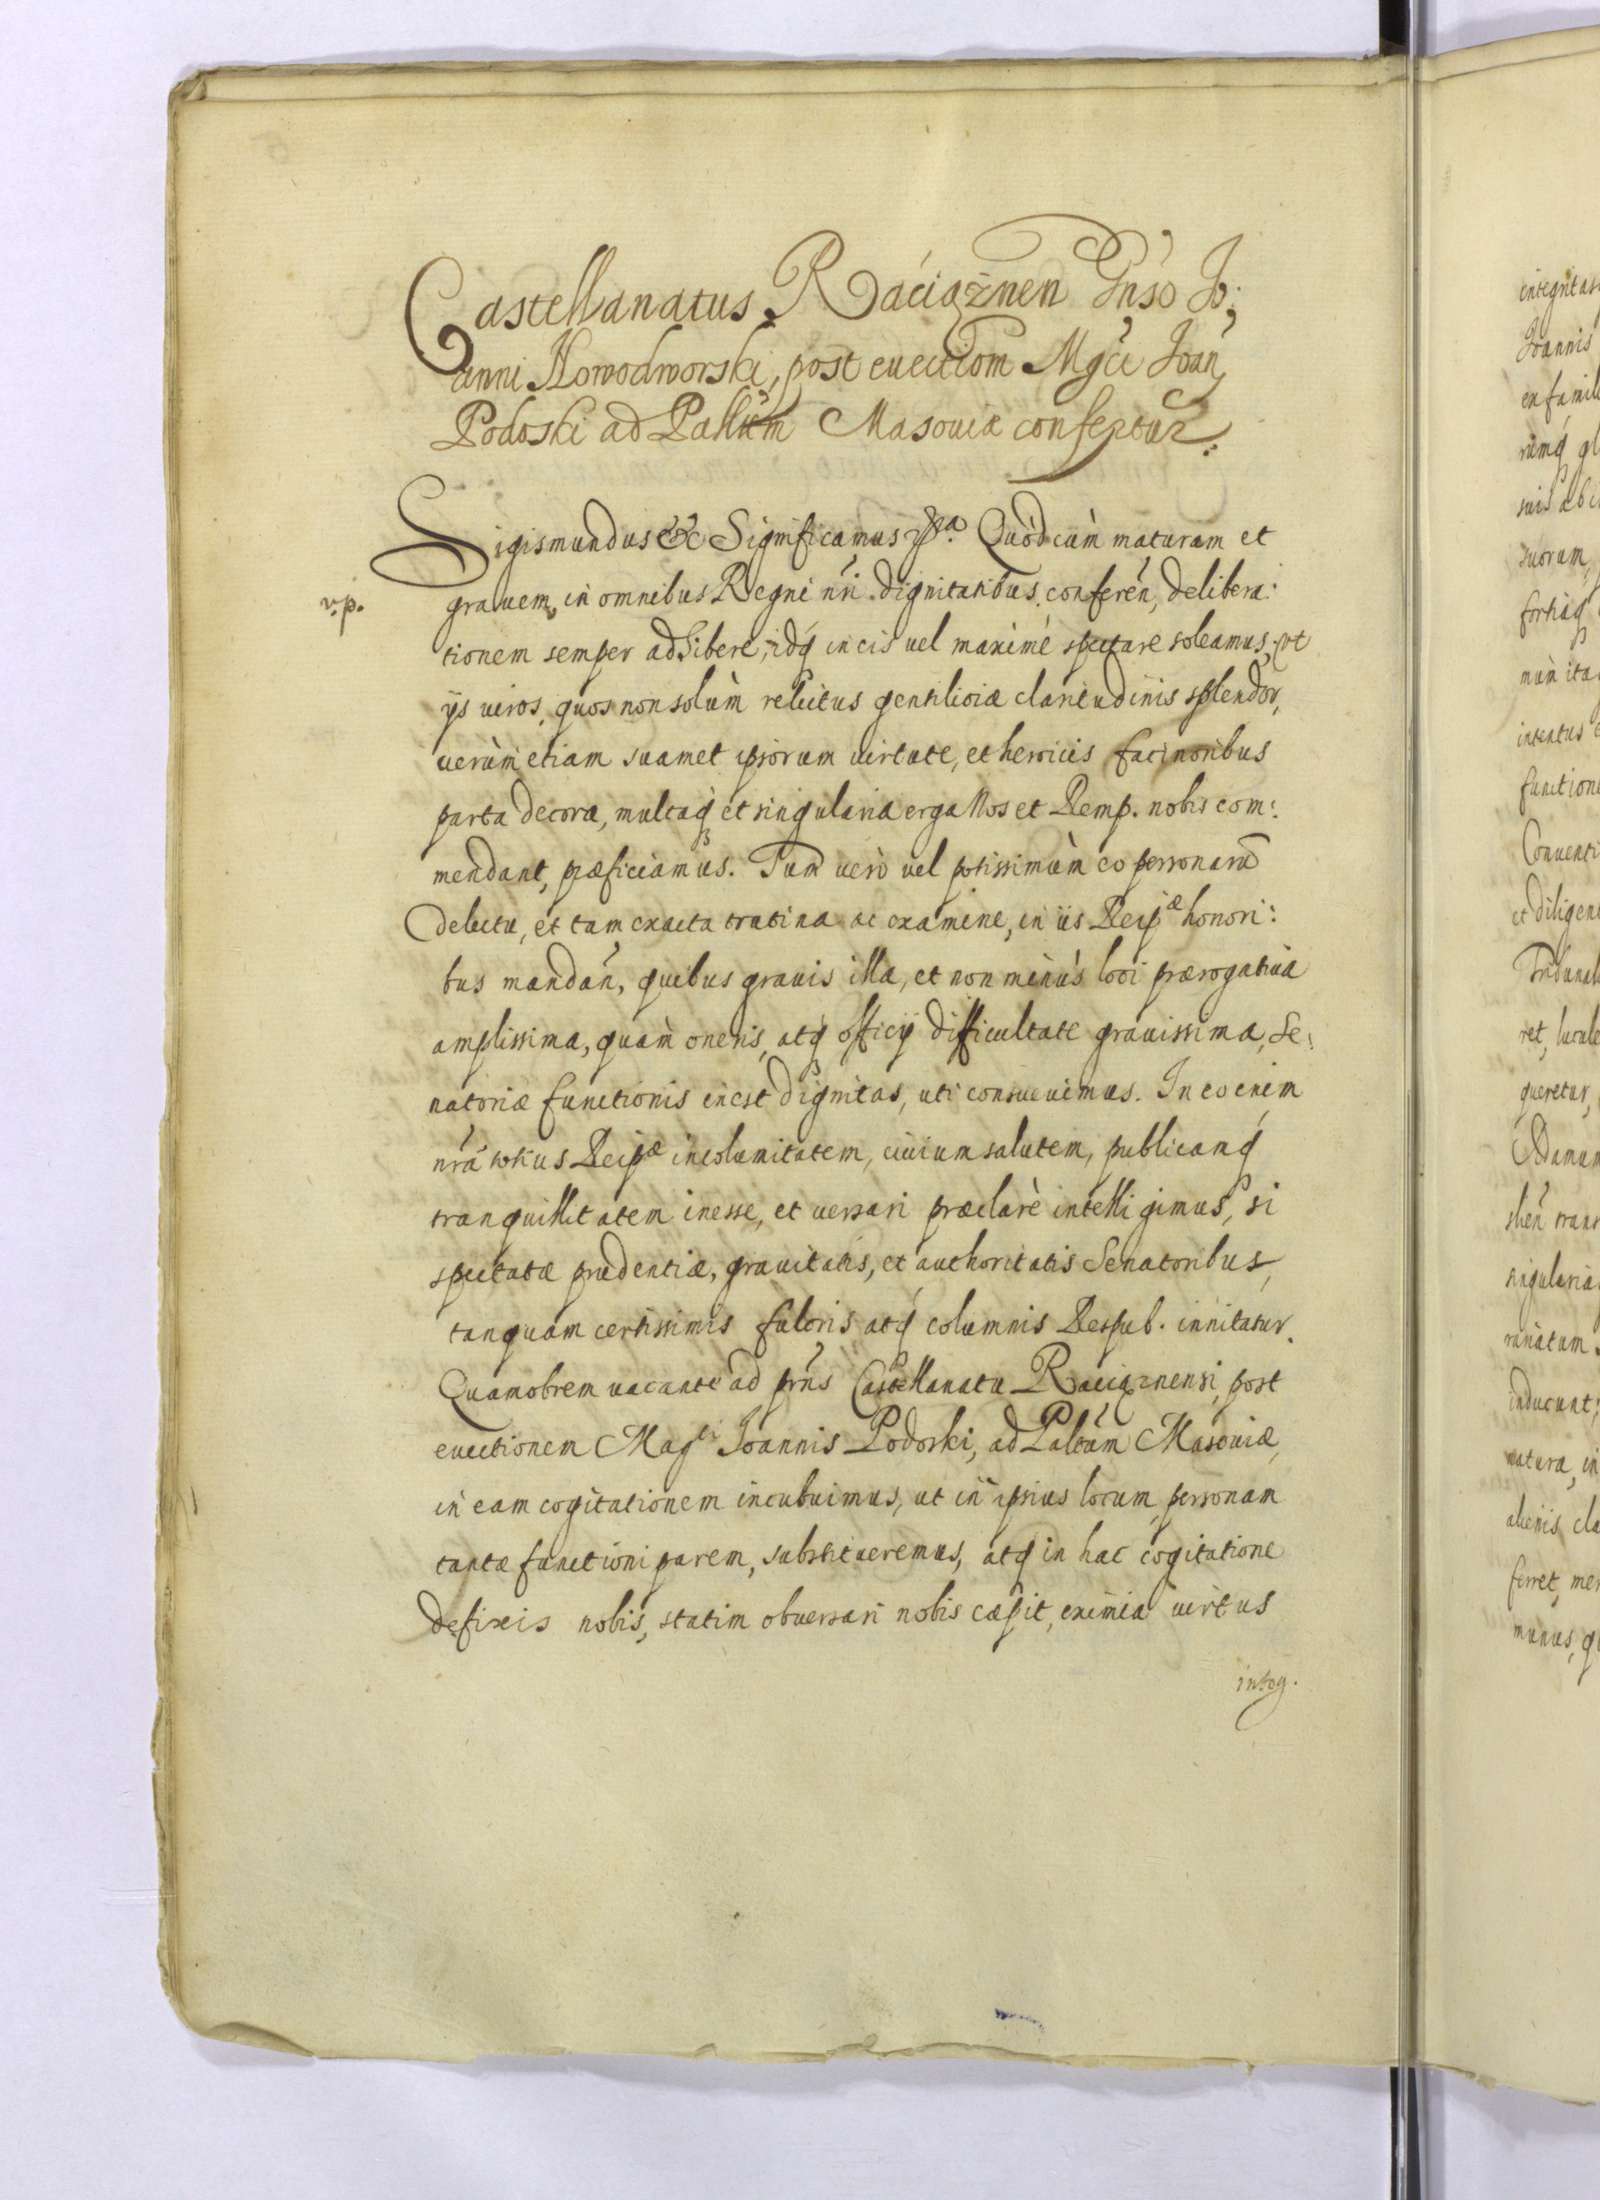 Castellanatus Raciąznen Gnso Jo:
anni Nowodworski, post euectiom Mgci Joan
Podoski ad Pallum Masouiæ confertur.
Sigismundus &c Significamus &a. Quòd cùm maturam et
v.p.
grauem, in omnibus Regni nri dignitatibus conferen, delibera:
tionem semper adhibere, idq in eis vel maximè spectare soleamus, vt
ijs viros, quos non solùm relictus gentilioiæ claritudinis splendor,
uerùm etiam suamet ipsorum virtute, et heroicis facinoribus
parta decora, multaq et singularia erga Nos et Remp. nobis com:
mendant, præficiamus. Tum uerò vel potissimùm eo personarū
delectu, et tam exacta trutina ac examine, in iis Reipæ honori:
bus mandan, quibus grauis illa, et non minùs loci prærogatiua
amplissima, quàm oneris, atq officij difficultate grauissima, Se:
natoriæ functionis inest dignitas, uti consueuimus. In eo enim
nra totius Reipæ incolumitatem, ciuium salutem, publicamq
tranquillitatem inesse, et uersari præclarè intelligimus, si
spectatæ prudentiæ, grauitatis, et authoritatis Senatoribus,
tanquam certissimis fulcris atq columnis Respub. innitatur.
Quamobrem uacante ad prns Castellanatu Raciąznensi, post
euectionem Magci Joannis Podoski, ad Paltum Masouiæ,
in eam cogitationem incubuimus, ut in ipsius locum, personam
tantæ functioni parem, substitueremus, atq in hac cogitatione
defixis nobis, statim obuersari nobis cæpit, eximia uirtus
integ.
integritas
Joannis
ex famil
rumq gl
suis ab i
suorum
fortiaq
intentus
function
Conuenti
et diligen
Tribunal
queretur,
singularia
inducunt;
natura, in
alienis, cla
ferret, mer
munus, q